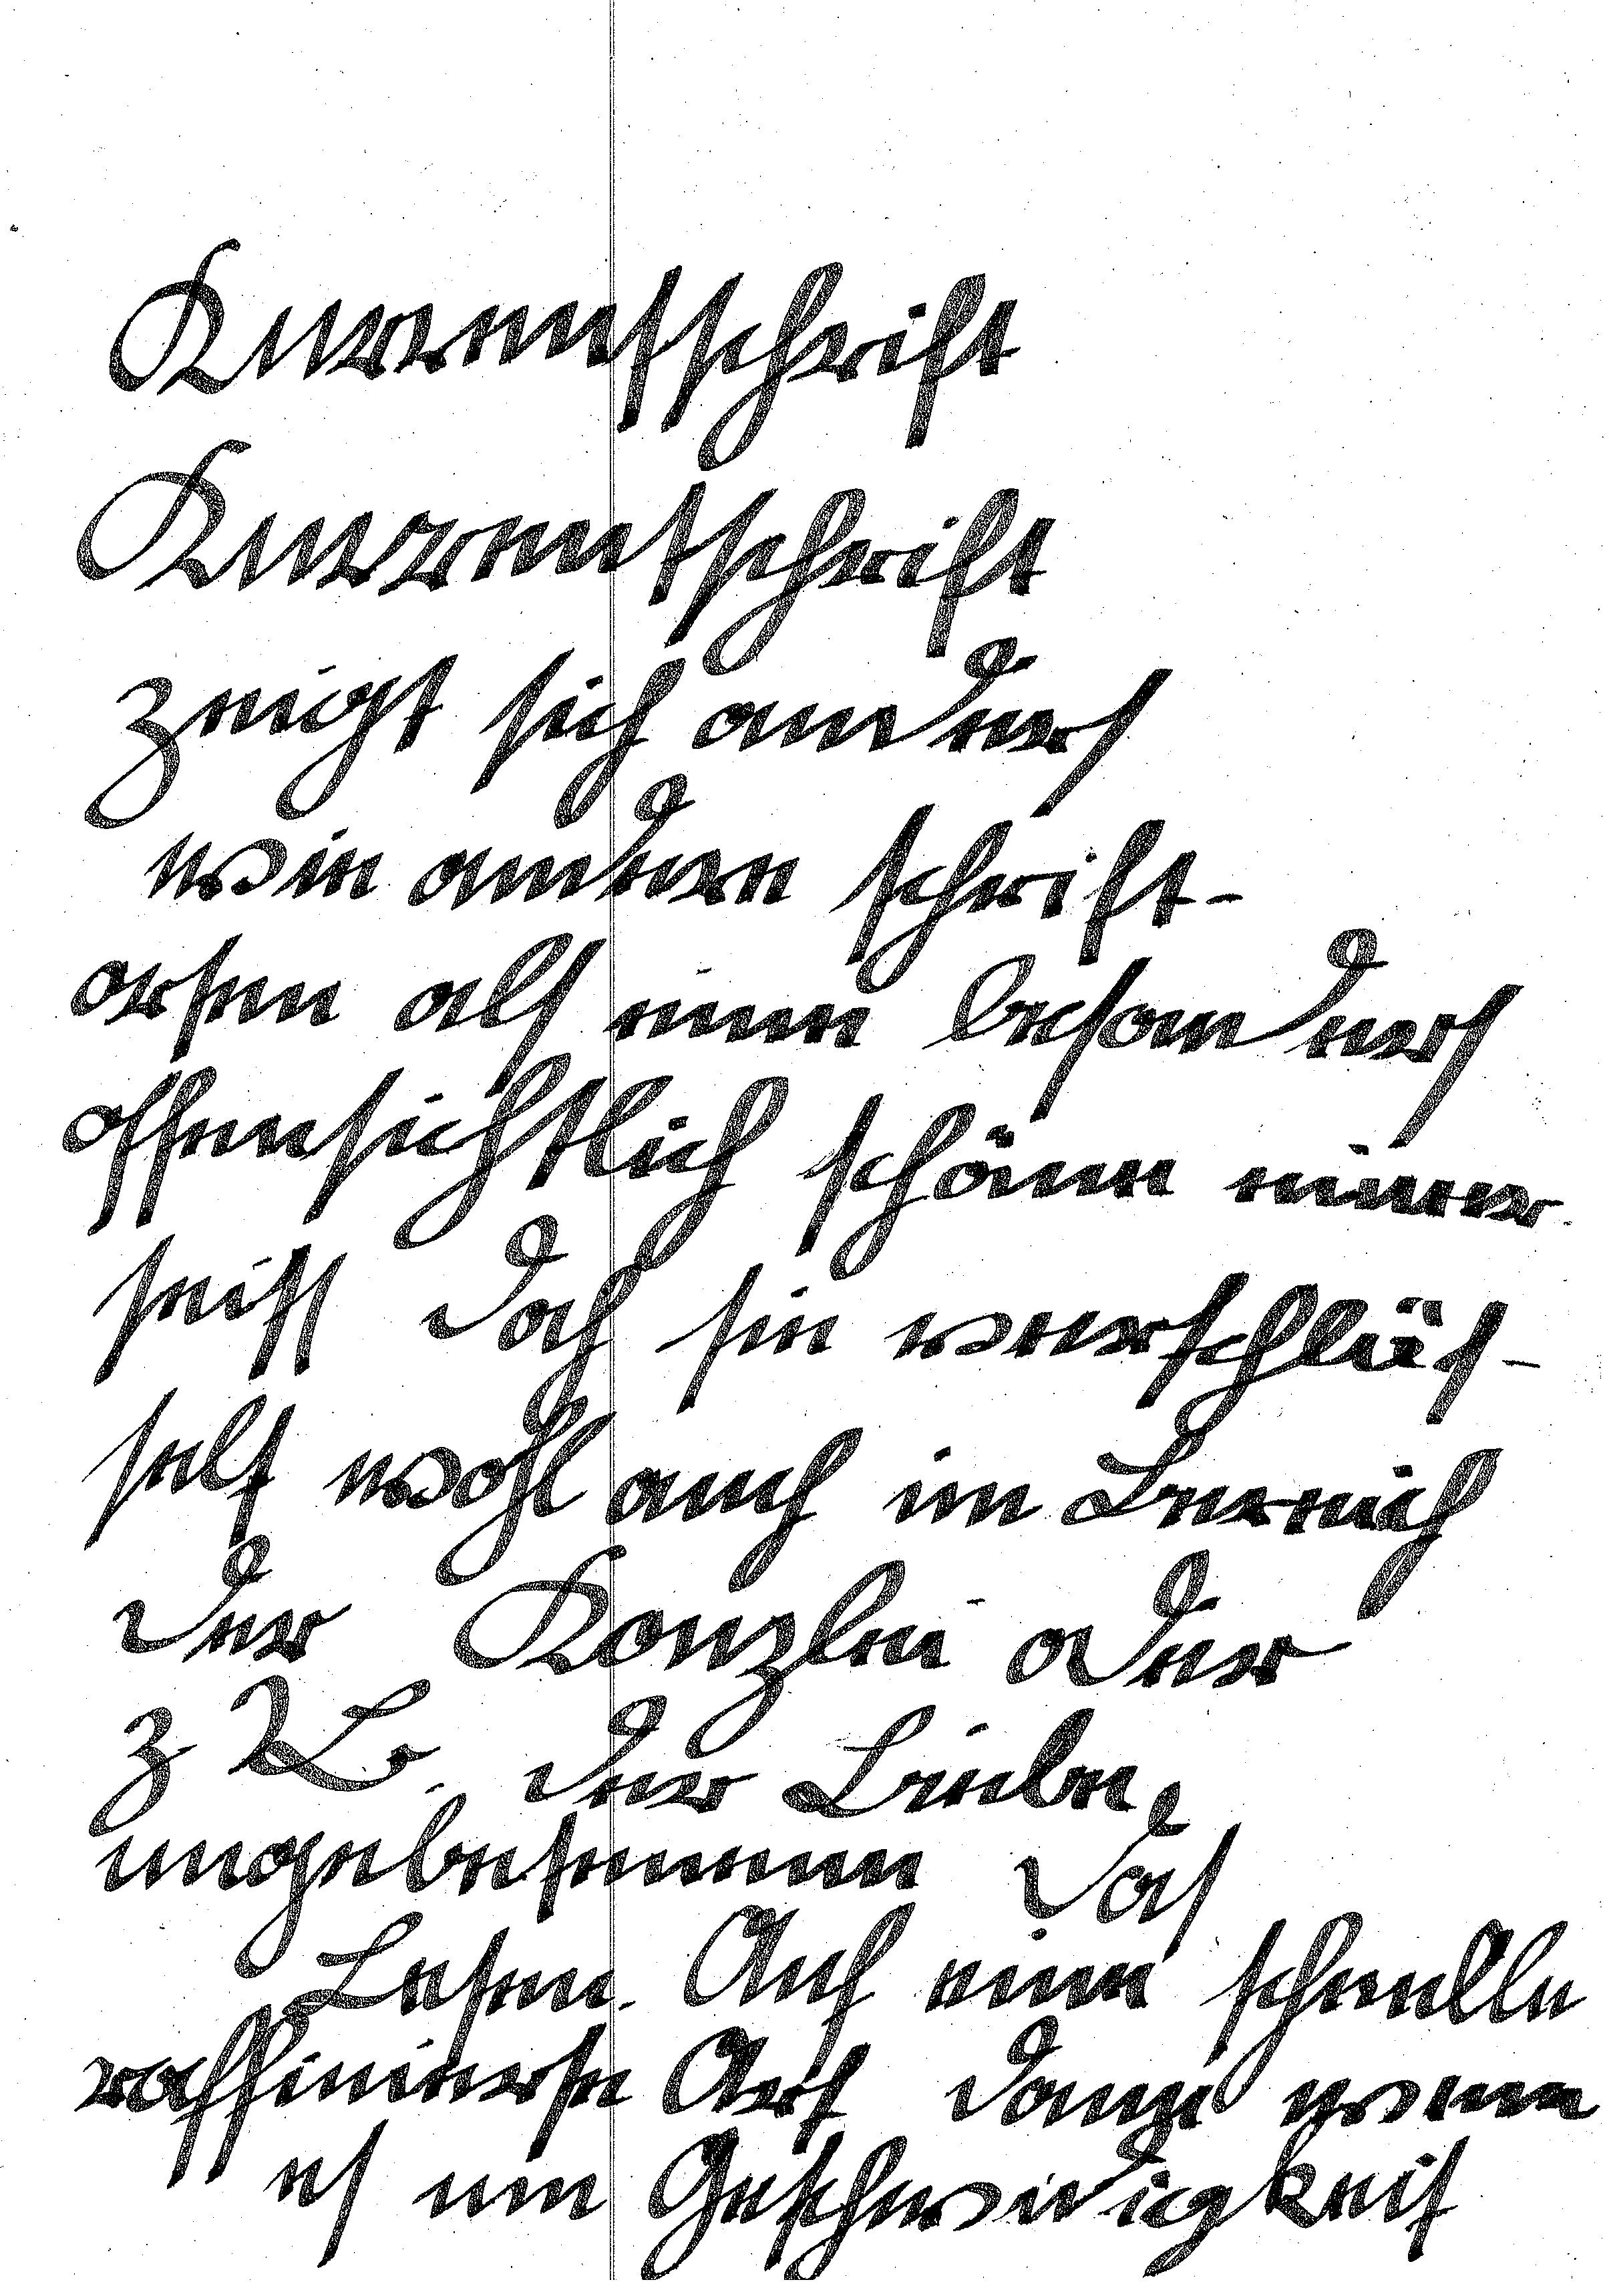 Kurrentschrift
Kurrentschrift
zeigt sich anders
wie andere schrift-
arten als eine besonders
offensichtlich schöne einer
seits doch sie verschlüs-
selt wohl auch im Bereich
der Kanzlei oder
z. B. der Briebe
ungebetenen das
Lesen. Auch eine schnelle
raffinierte Art dann wenn
es um Geschwidigkeit